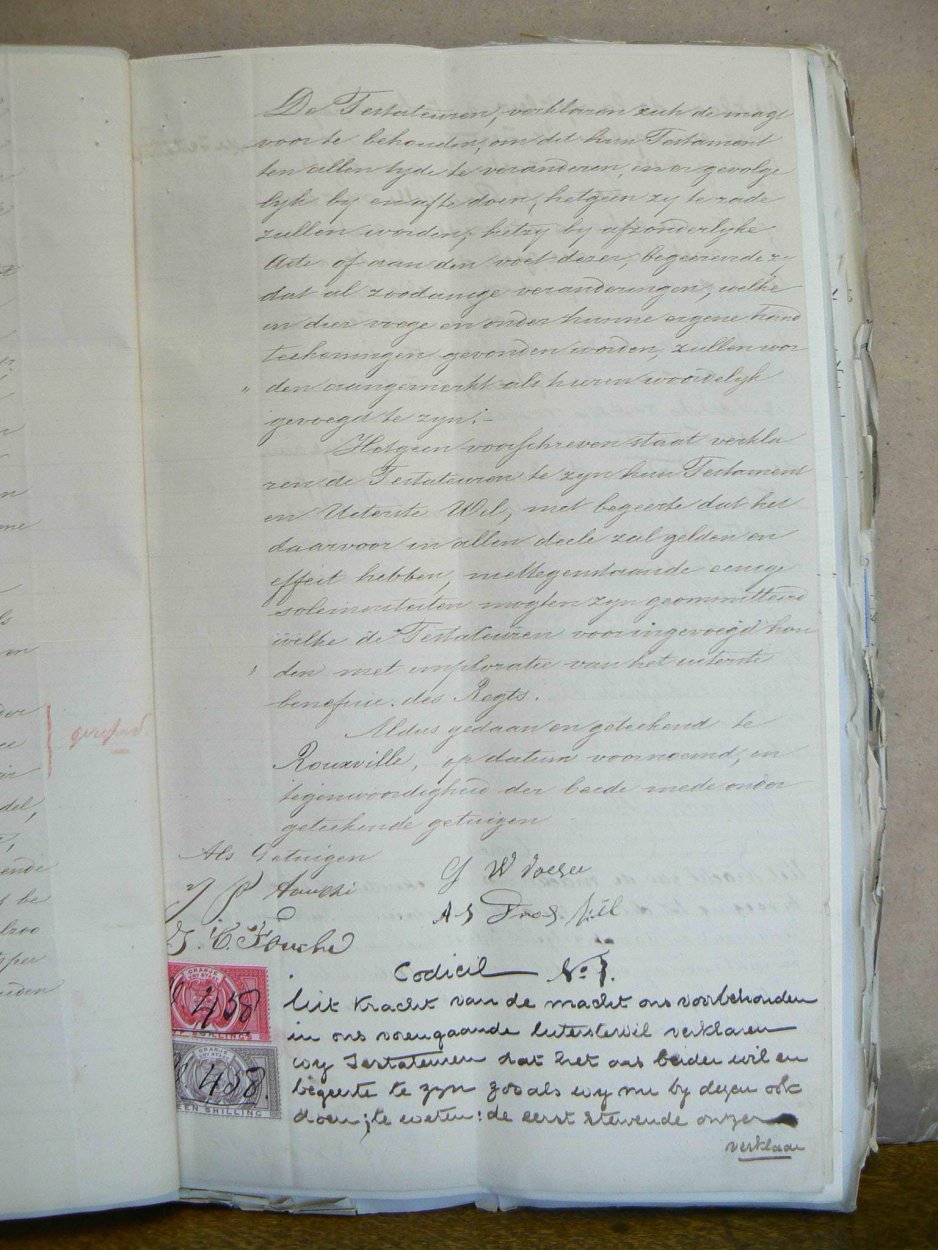 De Testateuren, verklaren zich de magt
voor te behouden, om dit hun Testament
ten allen tyde te veranderen, en er gevolge
lyk by en af te doen, hetgeen zy te rade
zullen worden, hetzy by afzonderlyke
Acte of aan den voet dezer, begeerende ze
dat al zoodanige veranderingen, welke
in dier voege en onder hunne eigene hand
teekeningen gevonden worden, zullen wor
den aangemerkt als hierin woordelyk
gevoegd te zyn.
Hetgeen voorschreven staat verkla
ren de Testateuren te zyn hun Testament
en Uiterste Wil, met begeerte dat het
daarvoor in allen deele zal gelden en
effect hebben, niettegenstaande eenige
solemniteiten mogten zyn geommitteerd
welke de Testateuren voor ingevoegd hou
den met imploratie van het uiterste
benefice des Regts.
Aldus gedaan en geteekend te
Rouxville, op datum voornoemd, in
tegenwoordigheid der beide mede onder
geteekende getuigen
Als Getuigen
J P Fouche
G W
A S
J. C. Fouché
Codicil No 1.
Uit kracht van de macht ons voorbehouden
in ons voorgaande Uitersterwil verklaren
wy Testateuren dat het ons beider wil en
begeerte te zyn zooals wy nu by dezen ook
doen; te weten: de eerst stervende onzer
verklaar
ORANJE
VRY STAAT
458
SHILLINGS
ORANJE
VRY STAAT
458.
EEN SHILLING